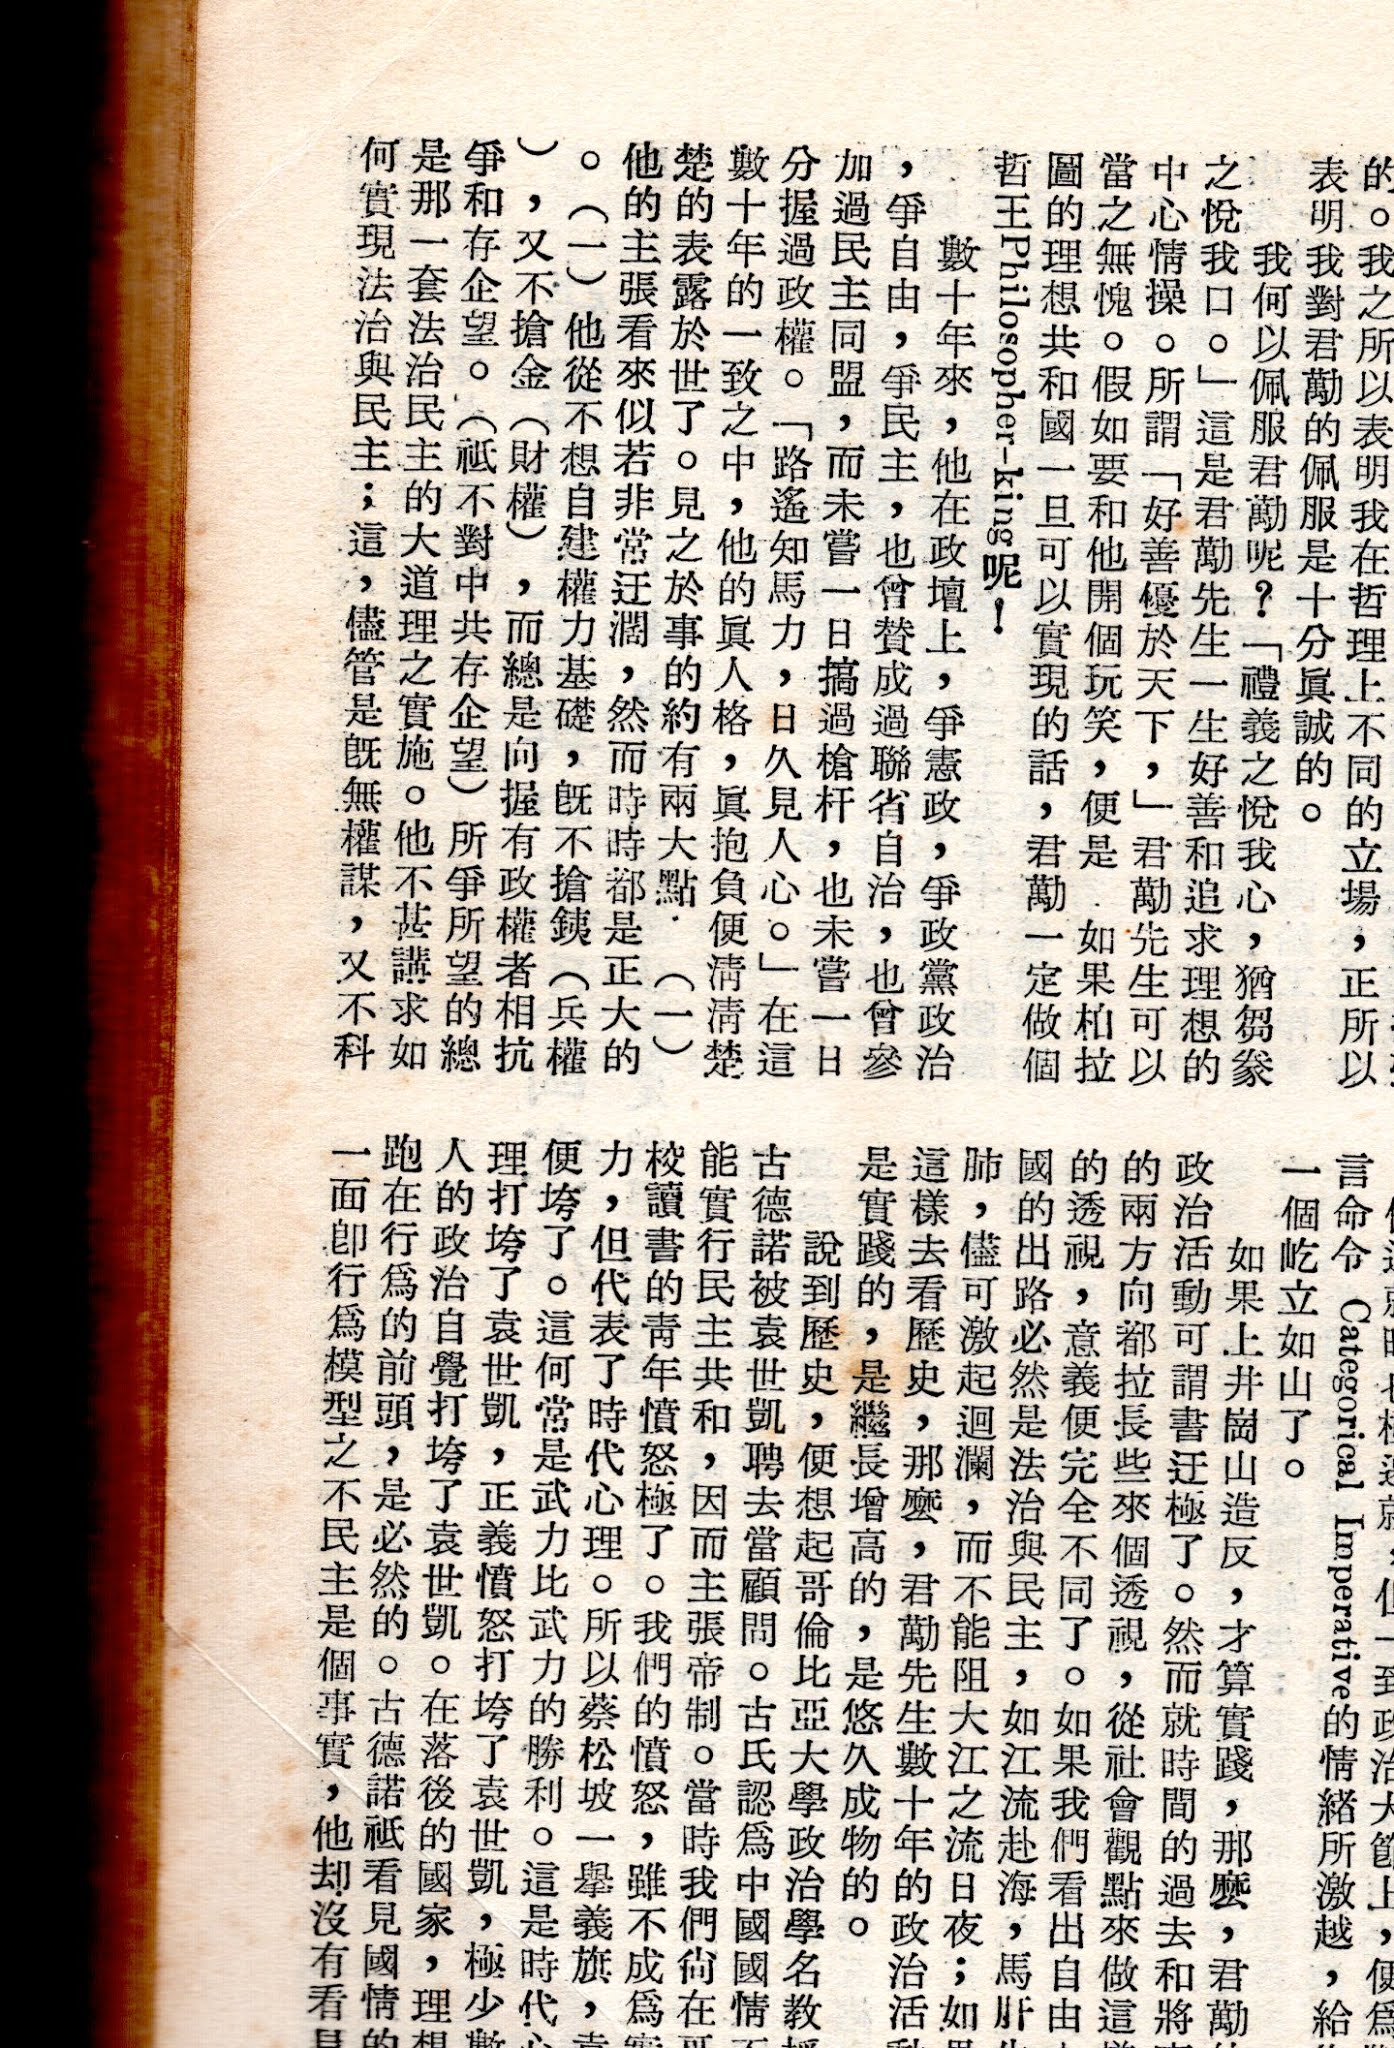 的。我之所以表明我在哲理上不同的立場，正所以
表明我對君勱的佩服是十分眞誠的。
我何以佩服君勱呢？「禮義之悅我心，猶芻豢
之悅我口。」這是君勱先生一生好善和追求理想的
中心情操。所謂「好善優於天下，」君勱先生可以
當之無愧。假如要和他開個玩笑，便是．如果柏拉
圖的理想共和國一旦可以實現的話，君勱一定做個
哲王Philosopher-king呢！
數十年來，他在政壇上，爭憲政，爭政黨政治
，爭自由，爭民主，也曾贊成過聯省自治，也曾參
加過民主同盟，而未嘗一日搞過槍杆，也未嘗一日
分握過政權。「路遙知馬力，日久見人心。」在這
數十年的一致之中，他的眞人格，眞抱負便淸淸楚
楚的表露於世了。見之於事的約有兩大點．（一）
他的主張看來似若非常迂濶，然而時時都是正大的
。（一）他從不想自建權力基礎，旣不搶銕（兵權
），又不搶金（財權），而總是向握有政權者相抗
爭和存企望。（祇不對中共存企望）所爭所望的總
是那一套法治民主的大道理之實施。他不甚講求如
何實現法治與民主；這，儘管是旣無權謀，又不科
言命令 Categorical Imperative的情緒所激越，給
一個屹立如山了。
如果上井崗山造反，才算實踐，那麼，君勱
政治活動可謂書迂極了。然而就時間的過去和將
的兩方向都拉長些來個透視，從社會觀點來做這
的透視，意義便完全不同了。如果我們看出自由
國的出路必然是法治與民主，如江流赴海，馬肝
肺，儘可激起迴瀾，而不能阻大江之流日夜；如
這樣去看歷史，那麼，君勱先生數十年的政治活
是實踐的，是繼長增高的，是悠久成物的。
說到歷史，便想起哥倫比亞大學政治學名教
古德諾被袁世凱聘去當顧問。古氏認爲中國國情
能實行民主共和，因而主張帝制。當時我們尙在
校讀書的靑年憤怒極了。我們的憤怒，雖不成爲
力，但代表了時代心理。所以蔡松坡一舉義旗，
便垮了。這何常是武力比武力的勝利。這是時代
理打垮了袁世凱，正義憤怒打垮了袁世凱，極少
人的政治自覺打垮了袁世凱。在落後的國家，理
跑在行爲的前頭，是必然的。古德諾祇看見國情的
一面卽行爲模型之不民主是個事實，他却沒有看